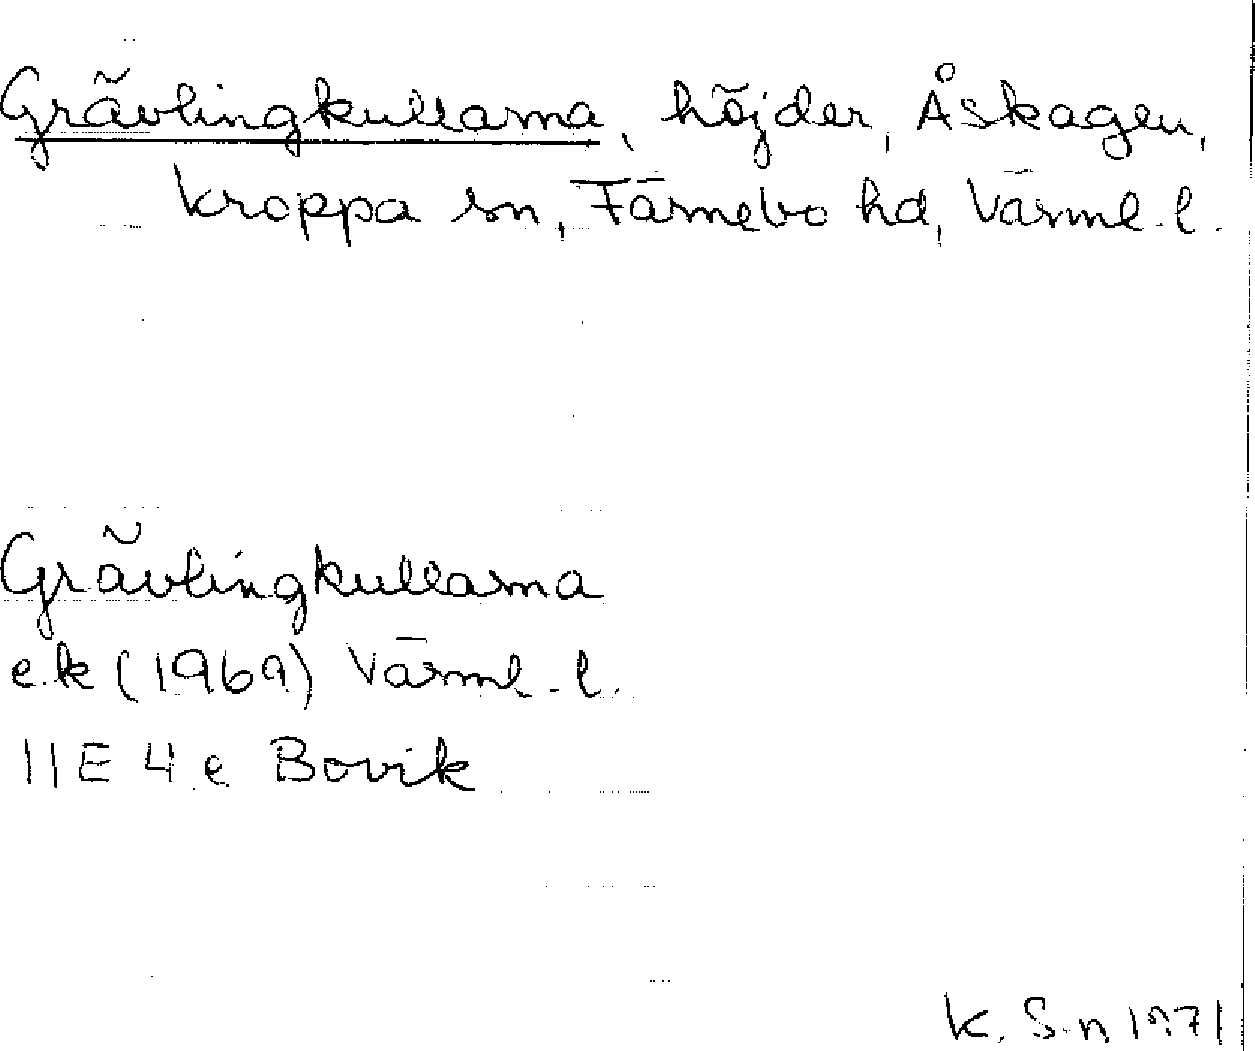 Grävlingkullarna, höjder, Åskagen,
Kroppa sn, Färnebo hd, Värml. l.
Grävlingkullarna
e.k (1969) Värml. l.
11E 4 e Bovik
K. S-n 1971